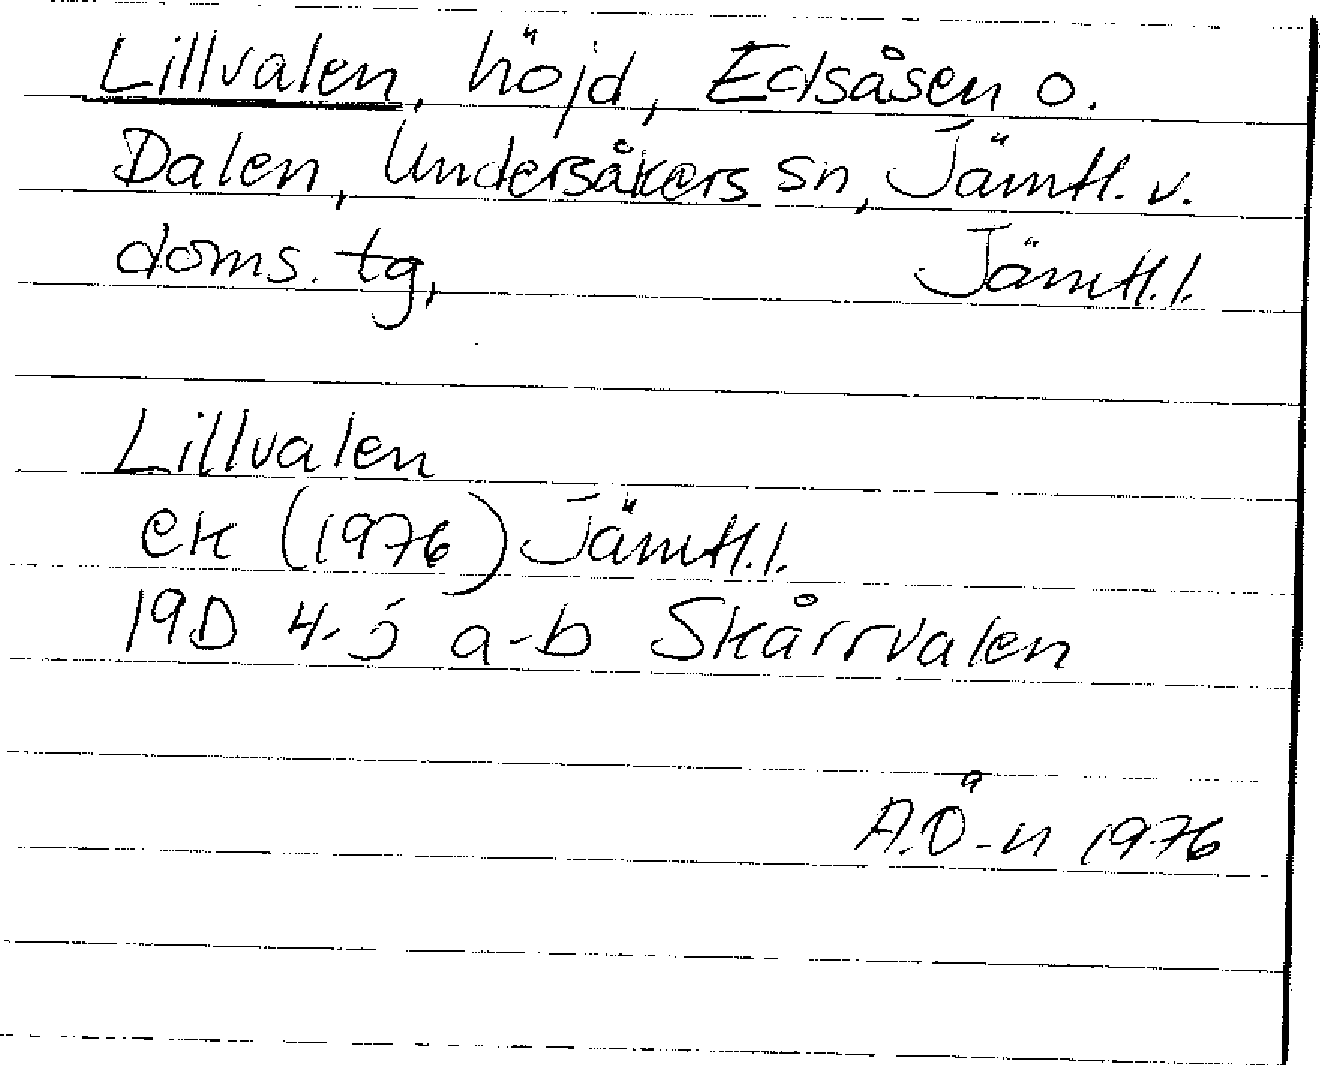 Lillvalen, höjd, Edsåsen o.
Dalen, Undersåkers sn, Jämtl. v.
doms. tg, Jämtl.l.
Lillvalen
ek (1976) Jämtl.l.
19D 4-5 a-b Skårrvalen
A.Ö-n 1976